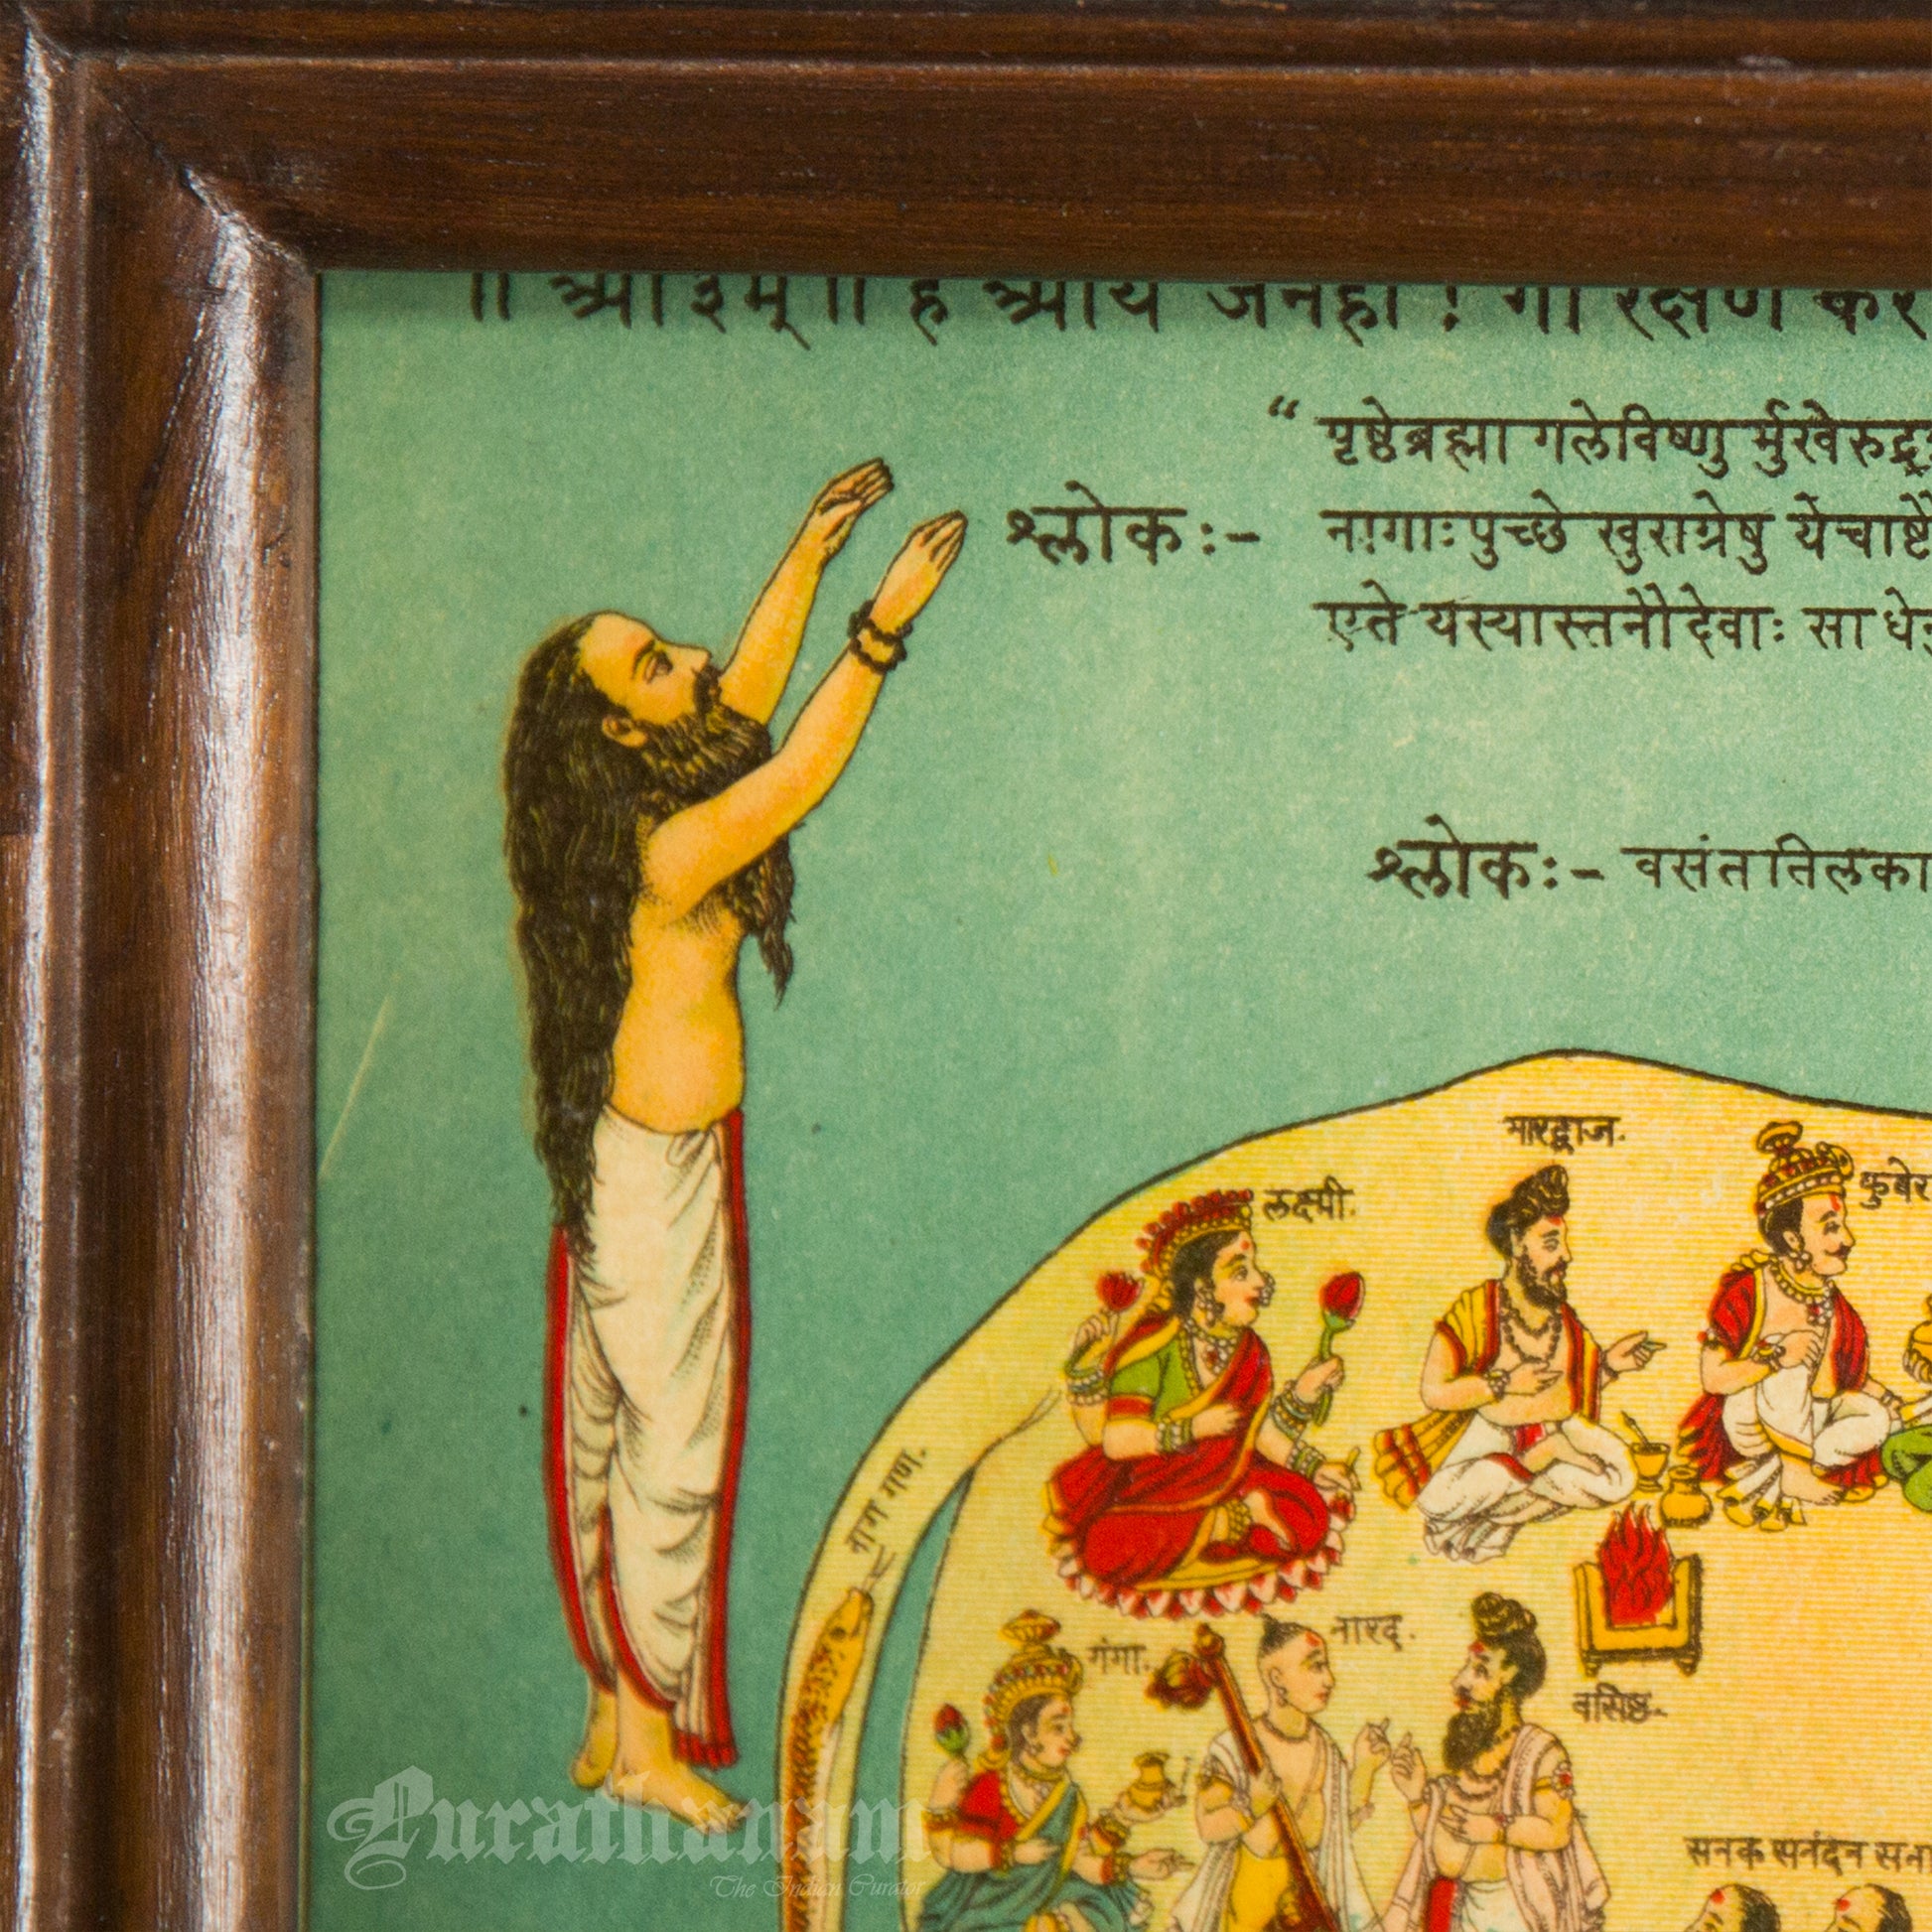 ॥ ओ३म् ॥ हे आर्य जनहो ! गो रक्षण
“ पृष्ठेब्रह्मा गलेविष्णु र्मुखेरुद्र
श्लोकः- नागाः पुच्छे खुराग्रेषु येचाष्टै
एते यस्यास्तनौदेवाः सा
श्लोकः- वसंततिलका
भारद्वाज.
कुबेर
लक्ष्मी.
नाग गण.
नारद.
गंगा.
वसिष्ठ.
सनक सनंदन
Purathanam
The Indian Curator